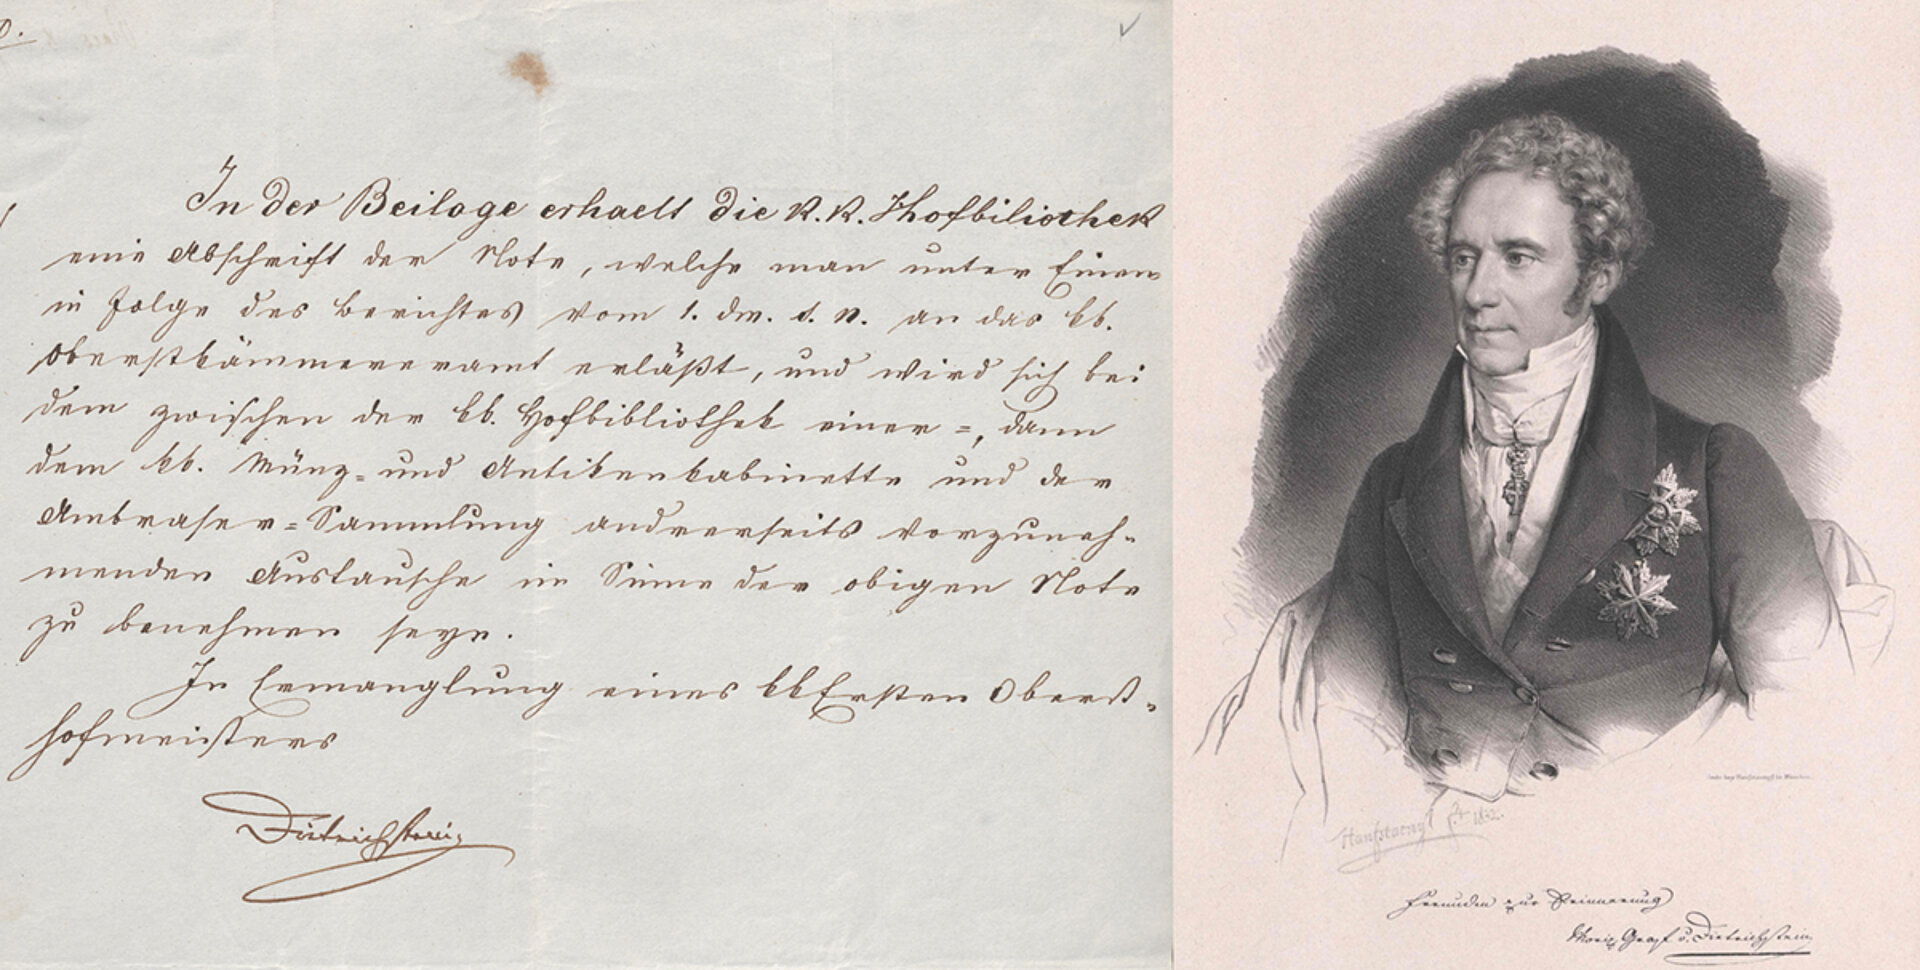 In der Beilage erhaelt die K. K. Hofbiliothek
eine Abschrift der Note, welche man unter Einem
in Folge des Berichtes vom 1. dm. d. J. an das kk.
Oberstkämmereramt erläßt, und wird sich bei
dem zwischen der kk. Hofbibliothek einer=, dann
dem kk. Münz= und Antikenkabinette und der
Ambraser=Sammlung andrerseits vorzuneh=
menden Austausche im Sinne der obigen Note
zu benehmen seyn.
In Ermanglung eines kk Ersten Oberst=
hofmeisters
Dietrichstein
Hanfstaengl 1832.
Freunden zur Erinnerung
Moriz Graf v. Dietrichstein